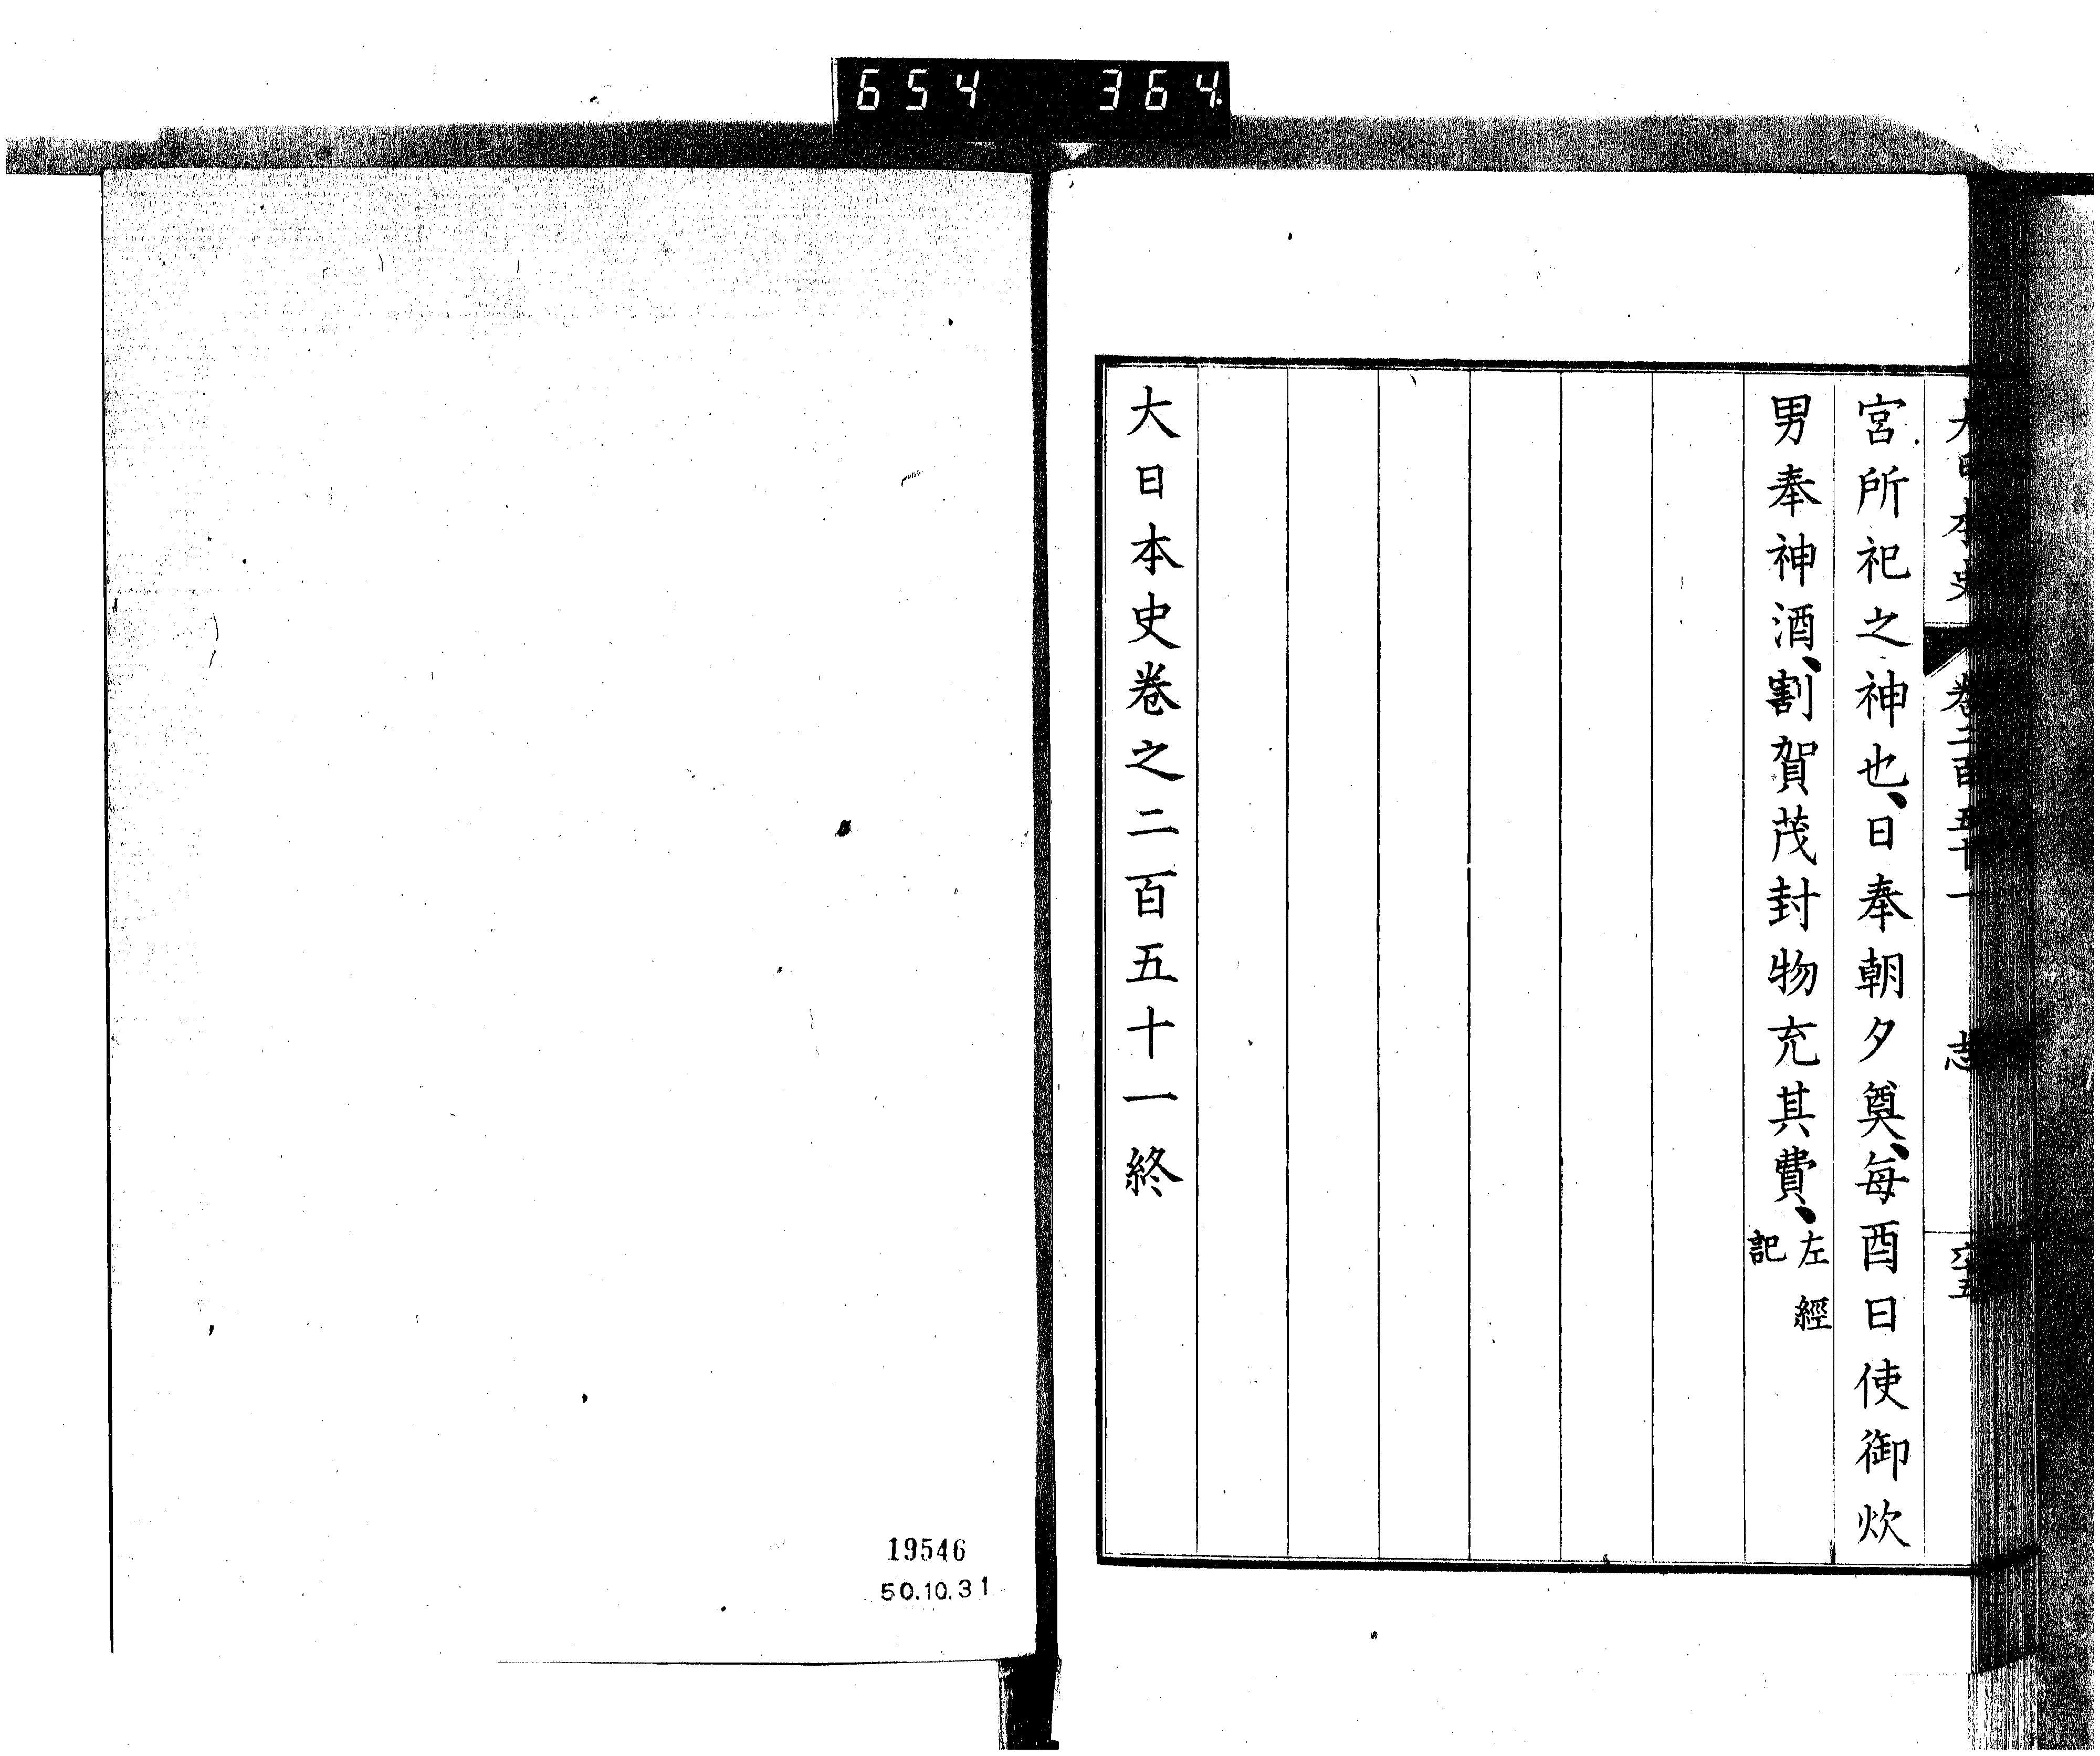 654 364
大日本史 卷二百五十一 志
宮所祀之神也、日奉朝夕奠、每酉日使御炊
男奉神酒、割賀茂封物充其費、左經記
大日本史卷之二百五十一終
19546
50.10.31